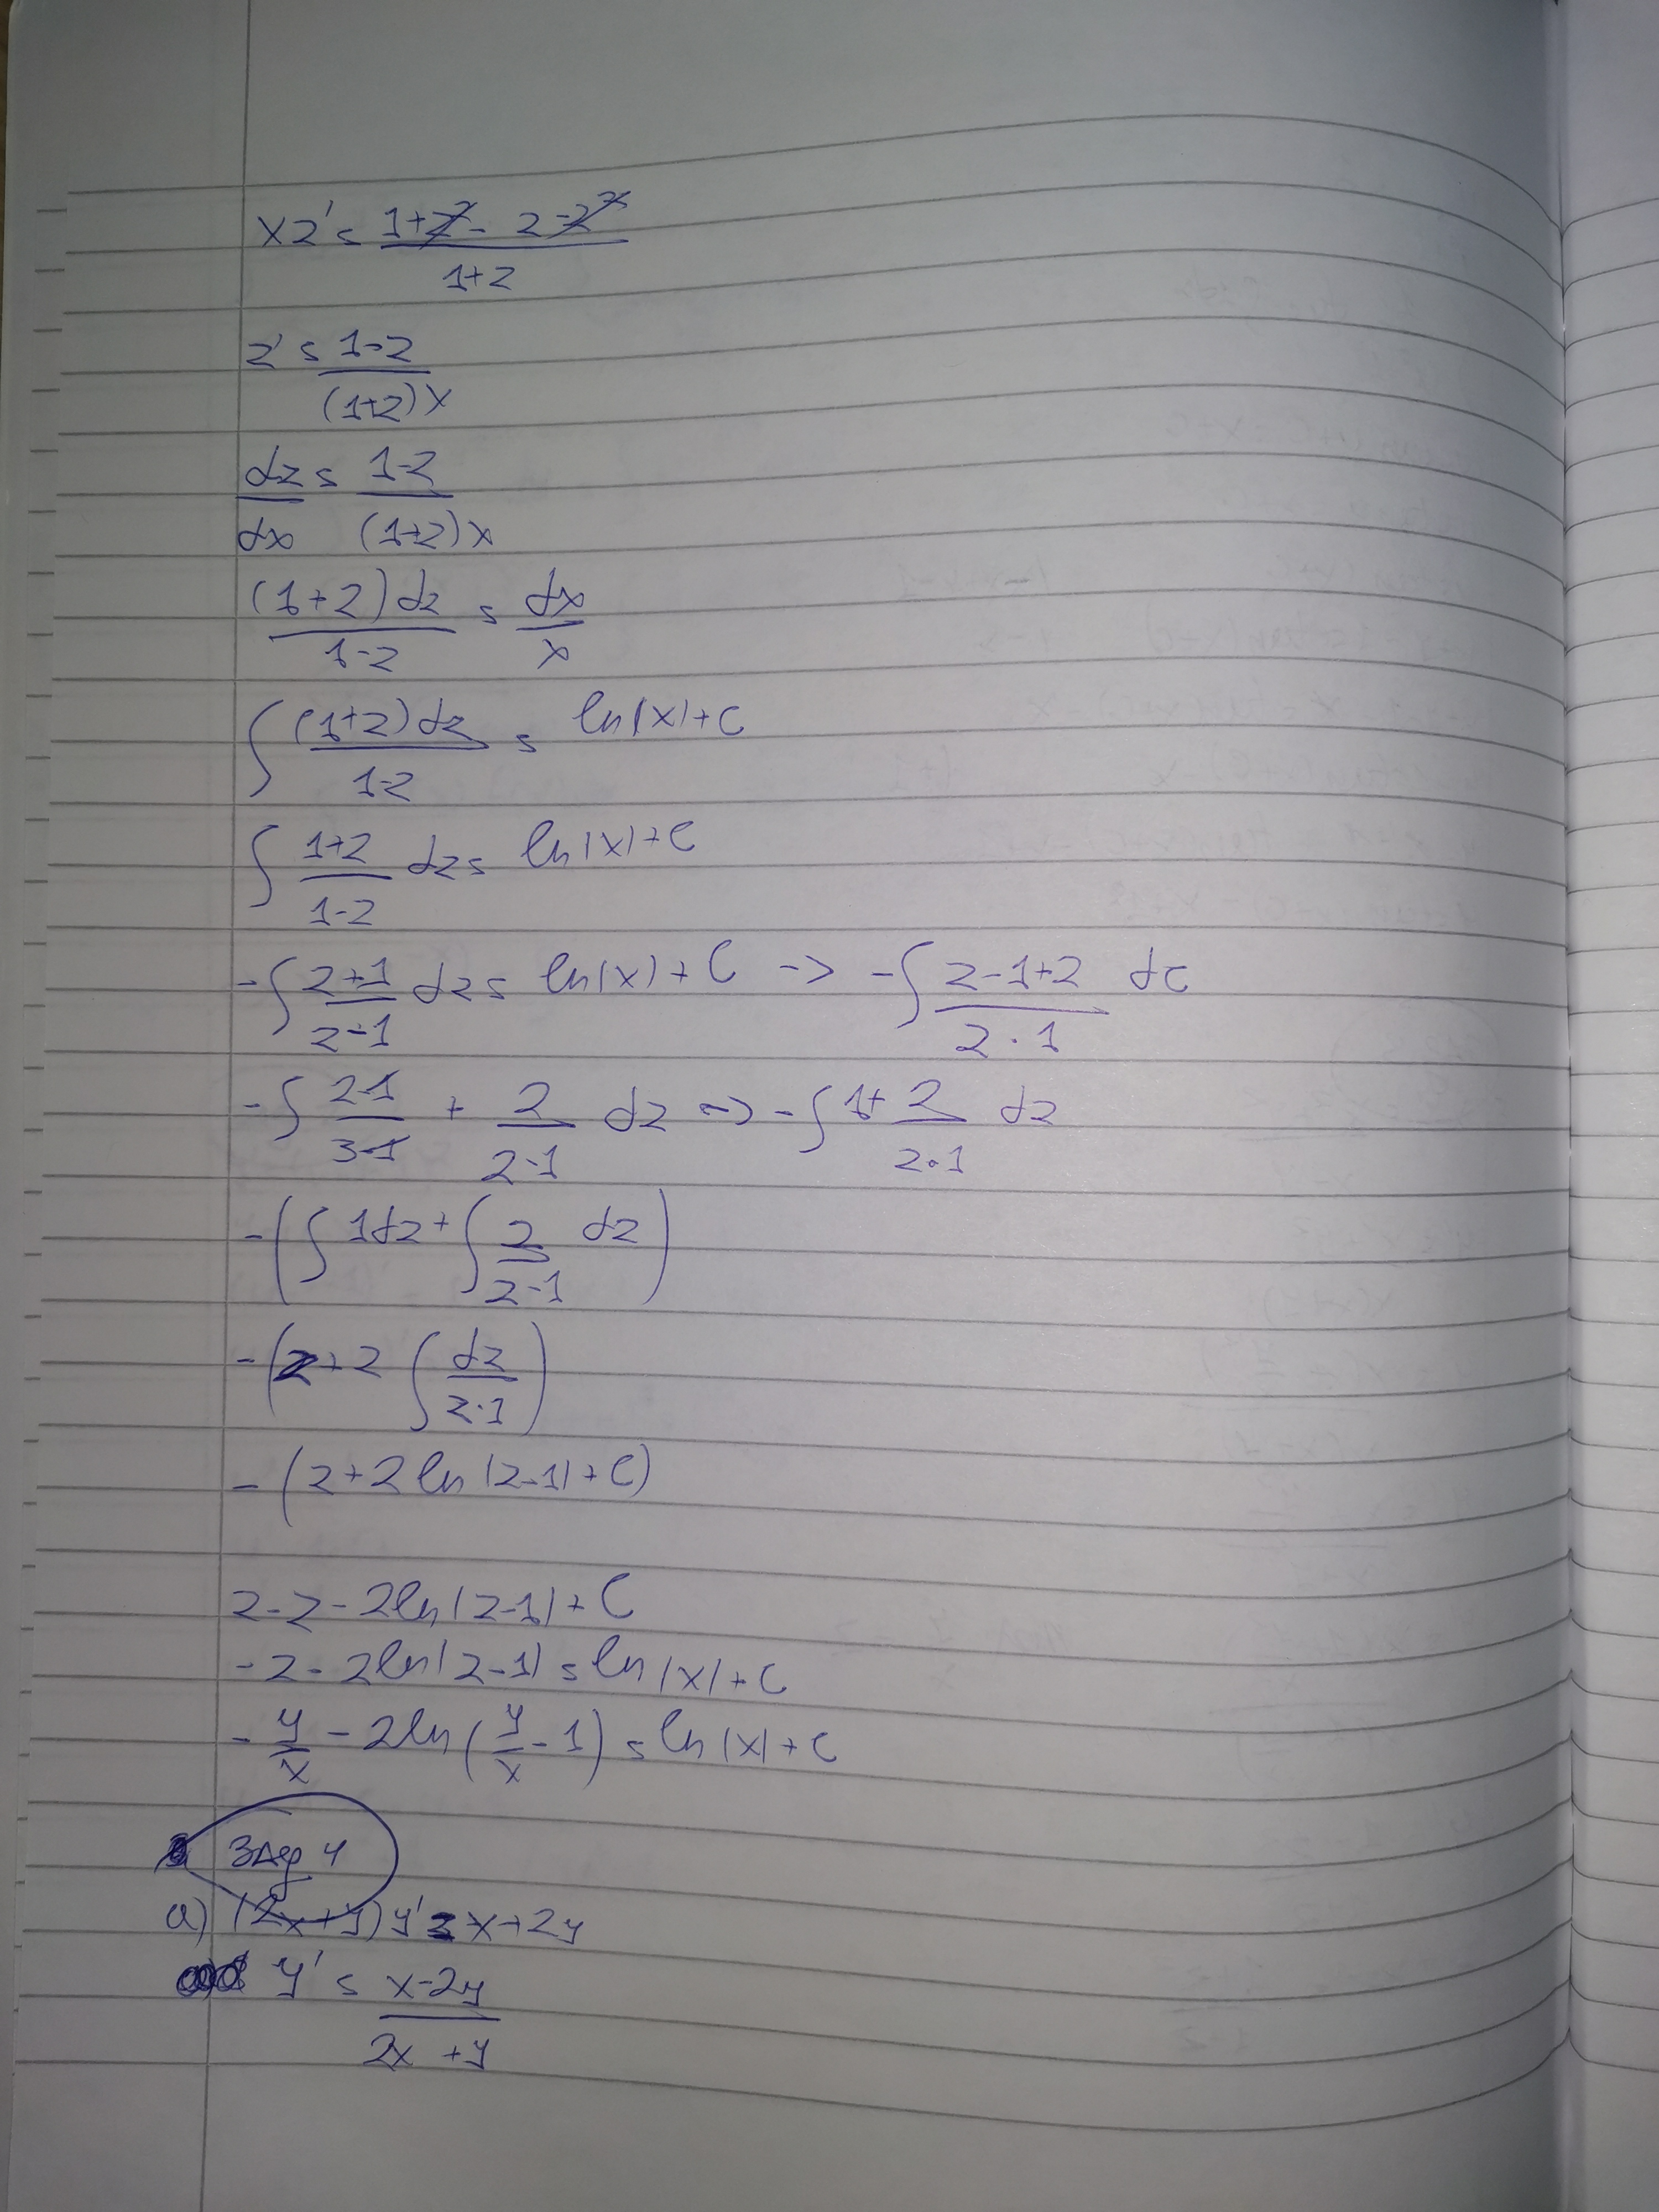 xz' = (1+z² - z - z²)/(1+z)
z' = (1-z)/((1+z)x)
dz/dx = (1-z)/((1+z)x)
(1+z)dz/(1-z) = dx/x
∫ (1+z)dz/(1-z) = ln|x|+C
∫ (1+z)/(1-z) dz = ln|x|+C
-∫ (z+1)/(z-1) dz = ln|x|+C -> -∫ (z-1+2)/(z-1) dz
-∫ (z-1)/(z-1) + 2/(z-1) dz -> -∫ 1+ 2/(z-1) dz
-(∫ 1dz + ∫ 2/(z-1) dz)
-(z+2 ∫ dz/(z-1))
-(z+2ln|z-1|+C)
z-z-2ln|z-1|+C
-z-2ln|z-1| = ln|x|+C
-y/x - 2ln(y/x - 1) = ln|x|+C
Зад 4
a) (2x+y)y' = x+2y
y' = (x-2y)/(2x+y)